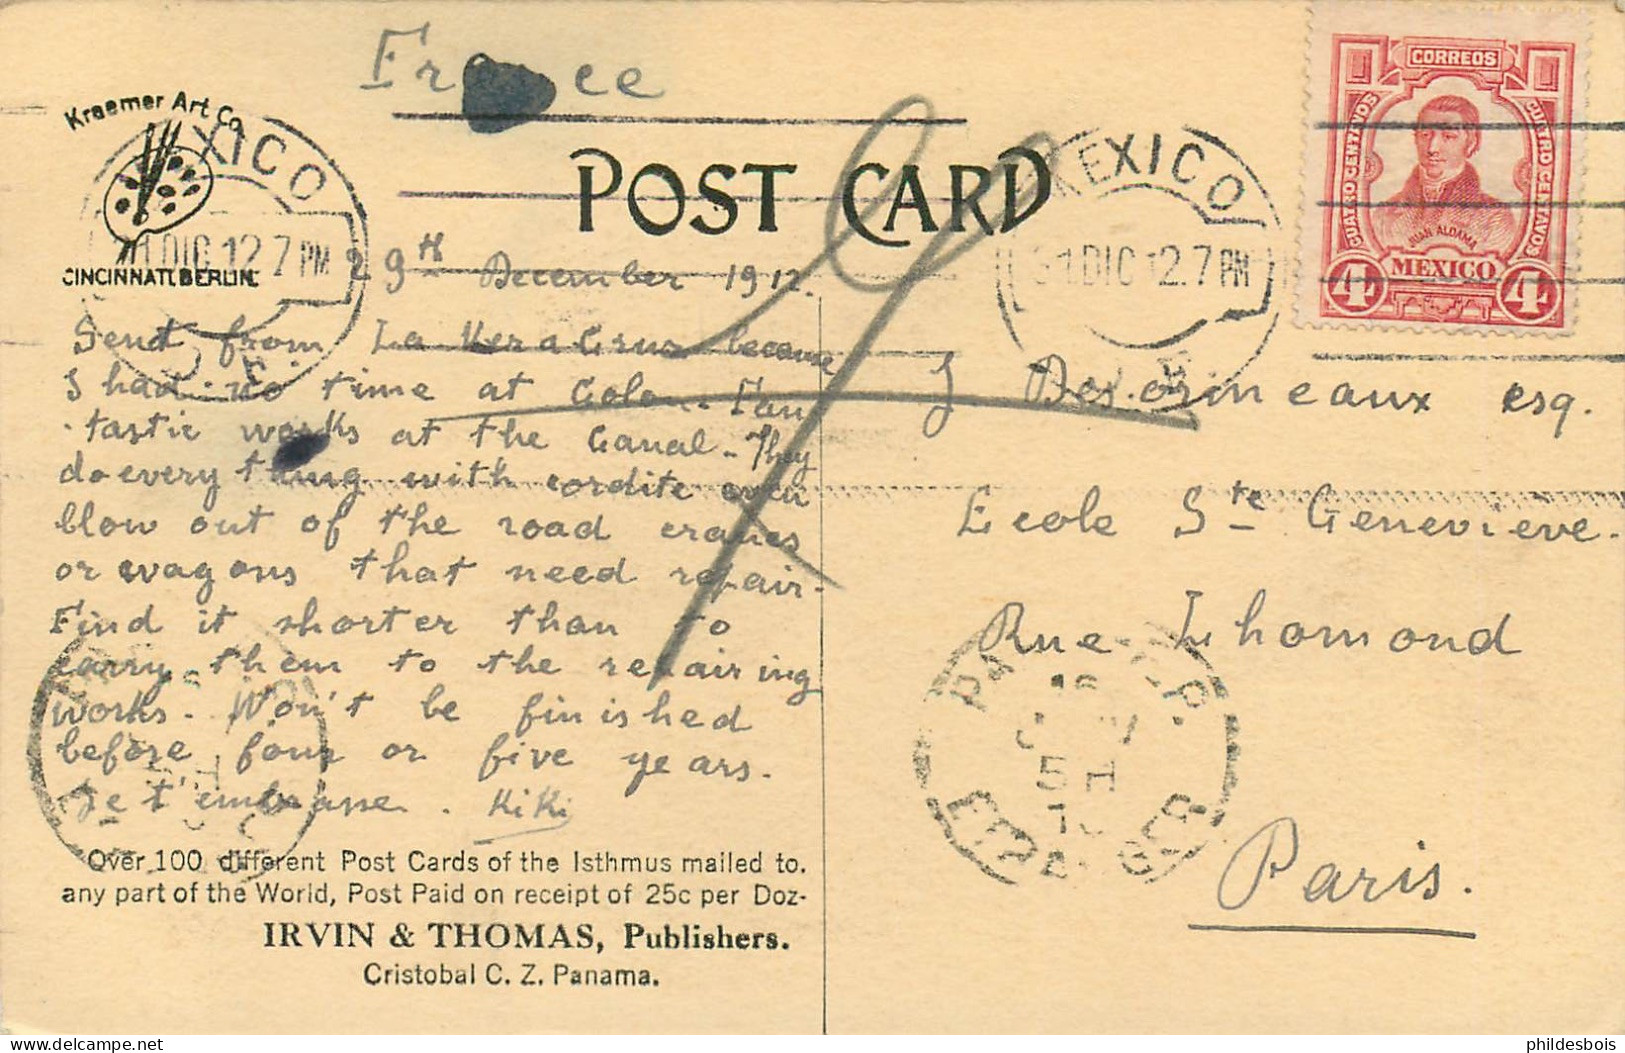 France
Kraemer Art Co
CINCINNATI. BERLIN.
POST CARD
MEXICO
31 DIC 12. 7 PM
CORREOS
CUATRO CENTAVOS
CUATRO CENTAVOS
JUAN ALDAMA
4 MEXICO 4
XICO
DIC 12 7 PM
29th December 1912.
Send from La Vera Cruz because
I had no time at Colon. Fan
tastic works at the Canal - They
do every thing with cordite even
blow out of the road cranes
or wagons that need repair.
Find it shorter than to
carry them to the repairing
works. Won't be finished
before four or five years.
Je t'embrasse. Kiki
J. Desormeaux esq.
Ecole Ste Genevieve.
Rue Lhomond
Paris.
Over 100 different Post Cards of the Isthmus mailed to.
any part of the World, Post Paid on receipt of 25c per Doz-
IRVIN & THOMAS, Publishers.
Cristobal C. Z. Panama.
phildesbois